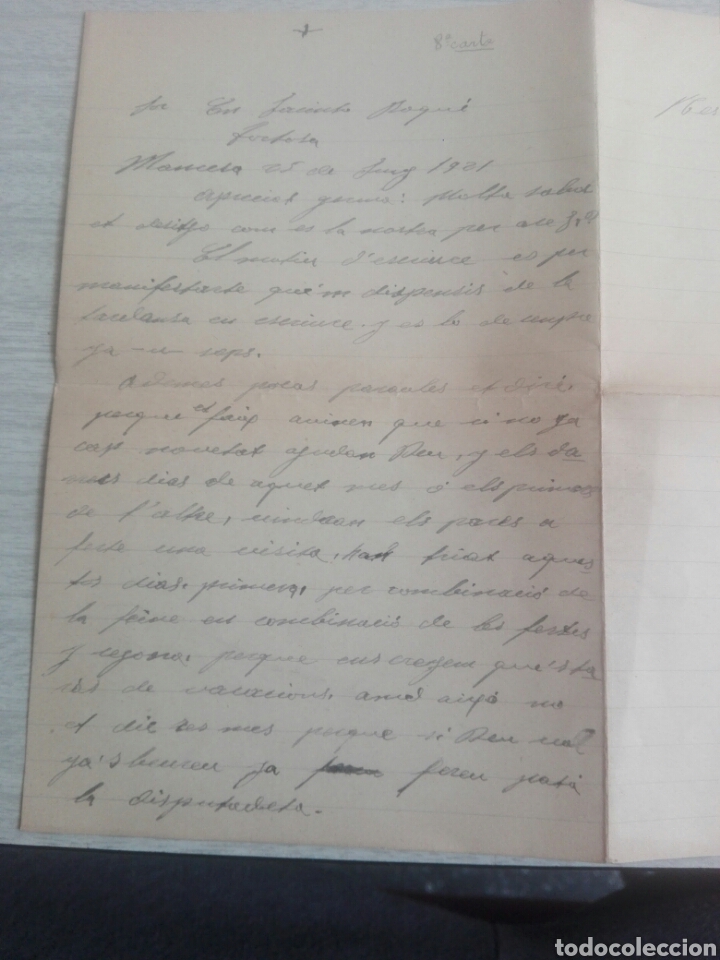 +
8ª carta
Sr En Jacinto Boqué
Tortosa
Manresa 25 de Juny 1901
Apreciat germá: Molta salut
et desitjo com es la nostra per ara
El motiu d'escriure es per
manifestarte que'm dispensis de la
tardansa en escriure y es lo de sempre
ya
Ademes pocas paraules et diré
porque et faig avinen que si no ya
cap novetat ajudan Deu, y els da
mes dias de aquet mes ó els primers
de l'altre, vindran els pares a
ferte una visita. Han triat aques
tos dias, primera, per combinació de
la feine en combinació de les festes
y segona, porque ens creyem que's ta
rás de vacacions. ames aixó no
et dic res mes porque si Deu vol
ya's veuren ya foren petá
la disputadeta.
todocoleccion